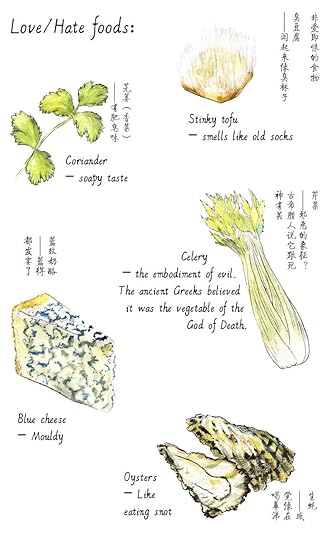 Love/Hate foods:
非爱即恨的食物
臭豆腐
——闻起来像臭袜子
Stinky tofu
— smells like old socks
芫荽（香菜）
——有肥皂味
Coriander
— soapy taste
芹菜
——邪恶的象征？
古希腊人说它跟死
神有关
Celery
— the embodiment of evil.
The ancient Greeks believed
it was the vegetable of the
God of Death.
蓝纹奶酪
——蓝得
都发霉了
Blue cheese
— Mouldy
Oysters
— Like
eating snot
生蚝
——感
觉像在
喝鼻涕